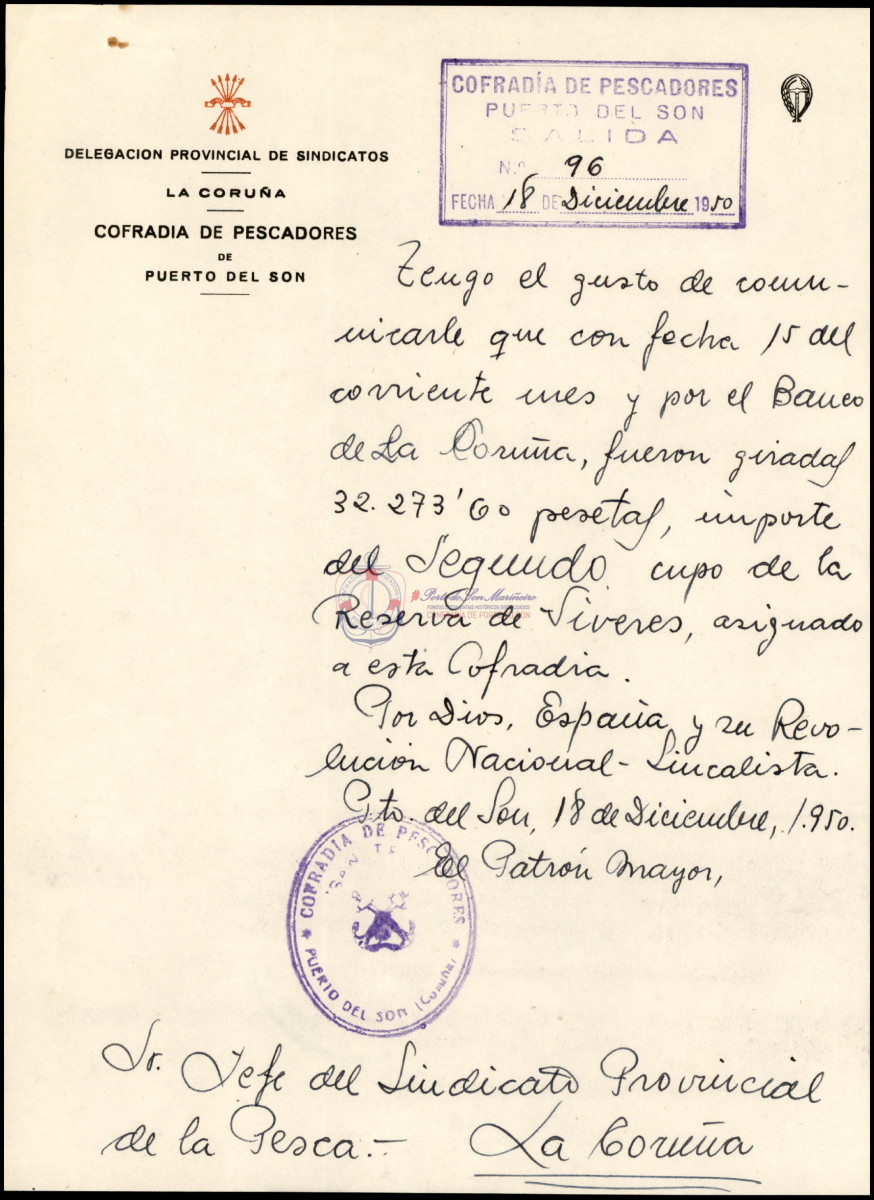 DELEGACION PROVINCIAL DE SINDICATOS
LA CORUÑA
COFRADIA DE PESCADORES
DE
PUERTO DEL SON
COFRADÍA DE PESCADORES
PUERTO DEL SON
SALIDA
N.º 96
FECHA 18 DE Diciembre 1950
Tengo el gusto de comu-
nicarle que con fecha 15 del
corriente mes y por el Banco
de La Coruña, fueron giradas
32.273'60 pesetas, importe
del Segundo cupo de la
Reserva de Víveres, asignado
a esta Cofradia.
Por Dios, España y su Revo-
lución Nacional-Sincalista.
Pto. del Son, 18 de Diciembre, 1.950.
El Patrón Mayor,
COFRADIA DE PESCADORES
PUERTO DEL SON (Coruña)
Sr. Jefe del Sindicato Provincial
de la Pesca.-
La Coruña
#Porto do Son Mariñeiro